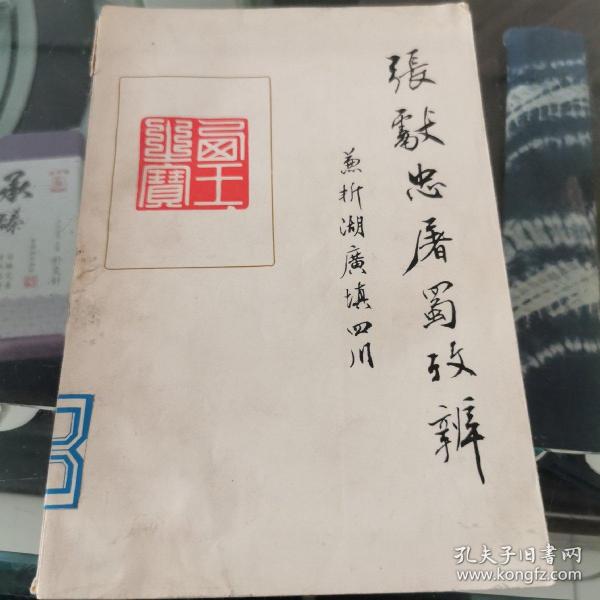 張獻忠屠蜀攷辨
兼析湖廣填四川
西王之寶
承
臻
孔夫子旧书网
www.kongfz.com